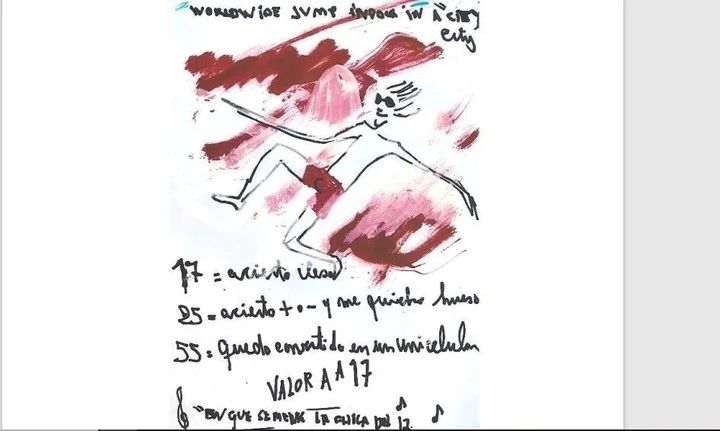 "WORLDWIDE JUMP IN A "CITY
City
17 = acierto ileso
25 = acierto + o - y me quiebro hueso
55 = quedo convertido en un unicelular
VALOR A A 17
"EN QUE SE LA CHICA DEL 17